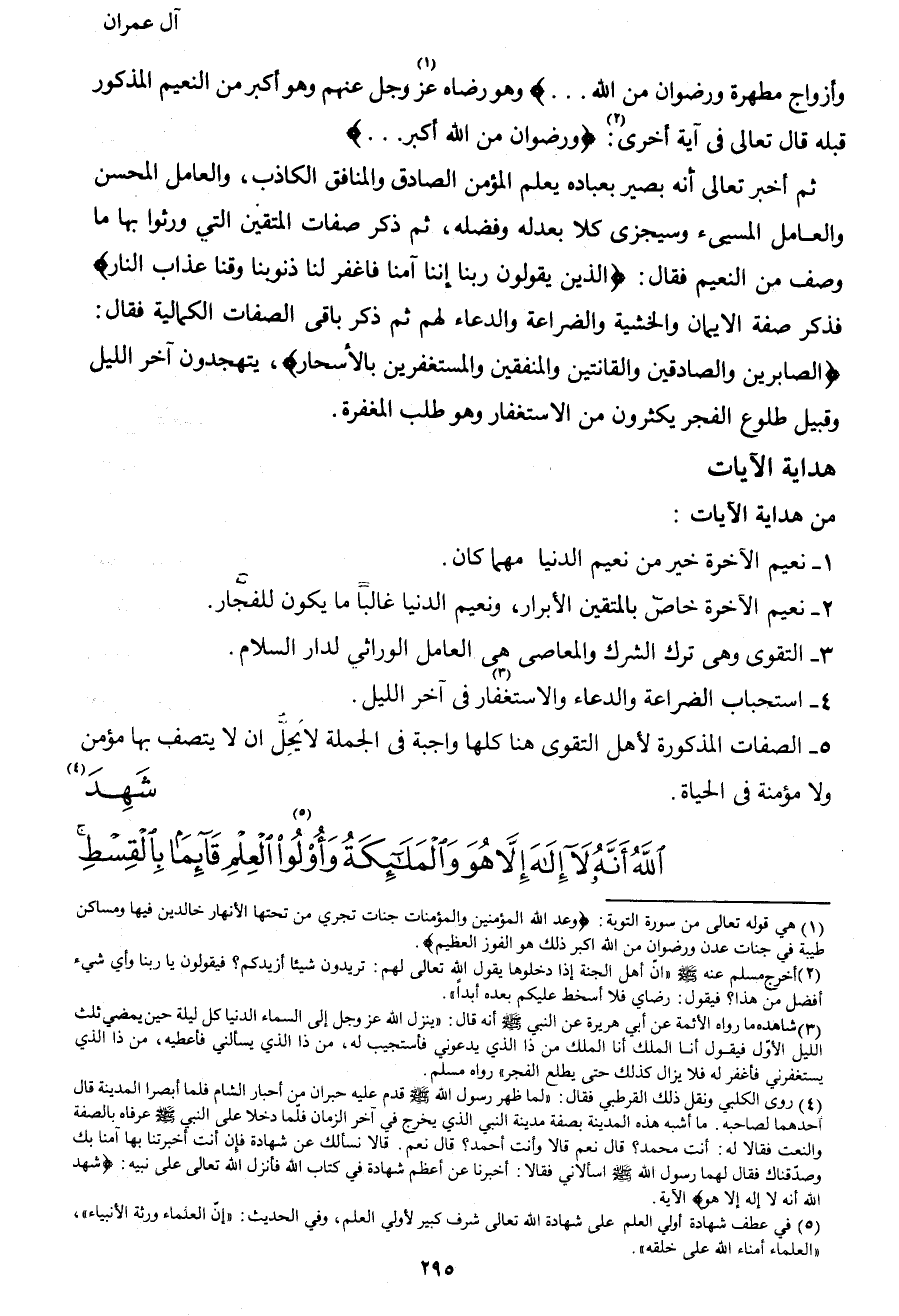 آل عمران
(١)
وأزواج مطهرة ورضوان من الله . . . ﴾ وهو رضاه عز وجل عنهم وهو أكبر من النعيم المذكور
قبله قال تعالى فى آية أخرى(٢): ﴿ورضوان من الله أكبر. . . ﴾
ثم أخبر تعالى أنه بصير بعباده يعلم المؤمن الصادق والمنافق الكاذب، والعامل المحسن
والعـامل المسيىء وسيجزى كلا بعدله وفضله، ثم ذكر صفات المتقين التي ورثوا بها ما
وصف من النعيم فقال: ﴿الذين يقولون ربنا إننا آمنا فاغفر لنا ذنوبنا وقنا عذاب النار﴾
فذكر صفة الايمان والخشية والضراعة والدعاء لهم ثم ذكر باقى الصفات الكمالية فقال:
﴿الصابرين والصادقين والقانتين والمنفقين والمستغفرين بالأسحار﴾، يتهجدون آخر الليل
وقبيل طلوع الفجر يكثرون من الاستغفار وهو طلب المغفرة.
هداية الآيات
من هداية الآيات :
١ـ نعيم الآخرة خير من نعيم الدنيا مهما كان.
٢ـ نعيم الآخرة خاصّ بالمتقين الأبرار، ونعيم الدنيا غالباً ما يكون للفجَّار.
٣ـ التقوى وهى ترك الشرك والمعاصى هى العامل الوراثي لدار السلام.
٤ـ استحباب الضراعة والدعاء والاستغفار(٣) فى آخر الليل.
٥ـ الصفات المذكورة لأهل التقوى هنا كلها واجبة فى الجملة لا يَحِلُّ ان لا يتصف بها مؤمن
ولا مؤمنة فى الحياة. شَهِـدَ(٤)
(٥)
ٱللَّهُ أَنَّهُۥ لَآ إِلَٰهَ إِلَّا هُوَ وَٱلْمَلَٰٓئِكَةُ وَأُو۟لُوا۟ ٱلْعِلْمِ قَآئِمًۢا بِٱلْقِسْطِ ۚ
(١) هي قوله تعالى من سورة التوبة: ﴿وعد الله المؤمنين والمؤمنات جنات تجري من تحتها الأنهار خالدين فيها ومساكن
طيبة في جنات عدن ورضوان من الله اكبر ذلك هو الفوز العظيم﴾.
(٢) أخرج مسلم عنه ﷺ «انّ أهل الجنة إذا دخلوها يقول الله تعالى لهم: تريدون شيئا أزيدكم؟ فيقولون يا ربنا وأي شيء
أفضل من هذا؟ فيقول: رضاي فلا أسخط عليكم بعده أبداً».
(٣) شاهده ما رواه الأئمة عن أبي هريرة عن النبي ﷺ أنه قال: «ينزل الله عز وجل إلى السماء الدنيا كل ليلة حين يمضي ثلث
الليل الأوّل فيقول أنـا الملك أنا الملك من ذا الذي يدعوني فأستجيب له، من ذا الذي يسألني فأعطيه، من ذا الذي
يستغفرني فأغفر له فلا يزال كذلك حتى يطلع الفجر» رواه مسلم.
(٤) روى الكلبي ونقل ذلك القرطبي فقال: «لما ظهر رسول الله ﷺ قدم عليه حبران من أحبار الشام فلما أبصرا المدينة قال
أحدهما لصاحبه. ما أشبه هذه المدينة بصفة مدينة النبي الذي يخرج في آخر الزمان فلّما دخلا على النبي ﷺ عرفاه بالصفة
والنعت فقالا له: أنت محمد؟ قال نعم قالا وأنت أحمد؟ قال نعم. قالا نسألك عن شهادة فإن أنت أخبرتنا بها آمنا بك
وصدّقناك فقال لهما رسول الله ﷺ اسألاني فقالا: أخبرنا عن أعظم شهادة في كتاب الله فأنزل الله تعالى على نبيه: ﴿شهد
الله أنه لا إله إلا هو﴾ الآية.
(٥) في عطف شهادة أولي العلم على شهادة الله تعالى شرف كبير لأولي العلم، وفي الحديث: «إنّ العلماء ورثة الأنبياء»،
«العلماء أمناء الله على خلقه».
٢٩٥